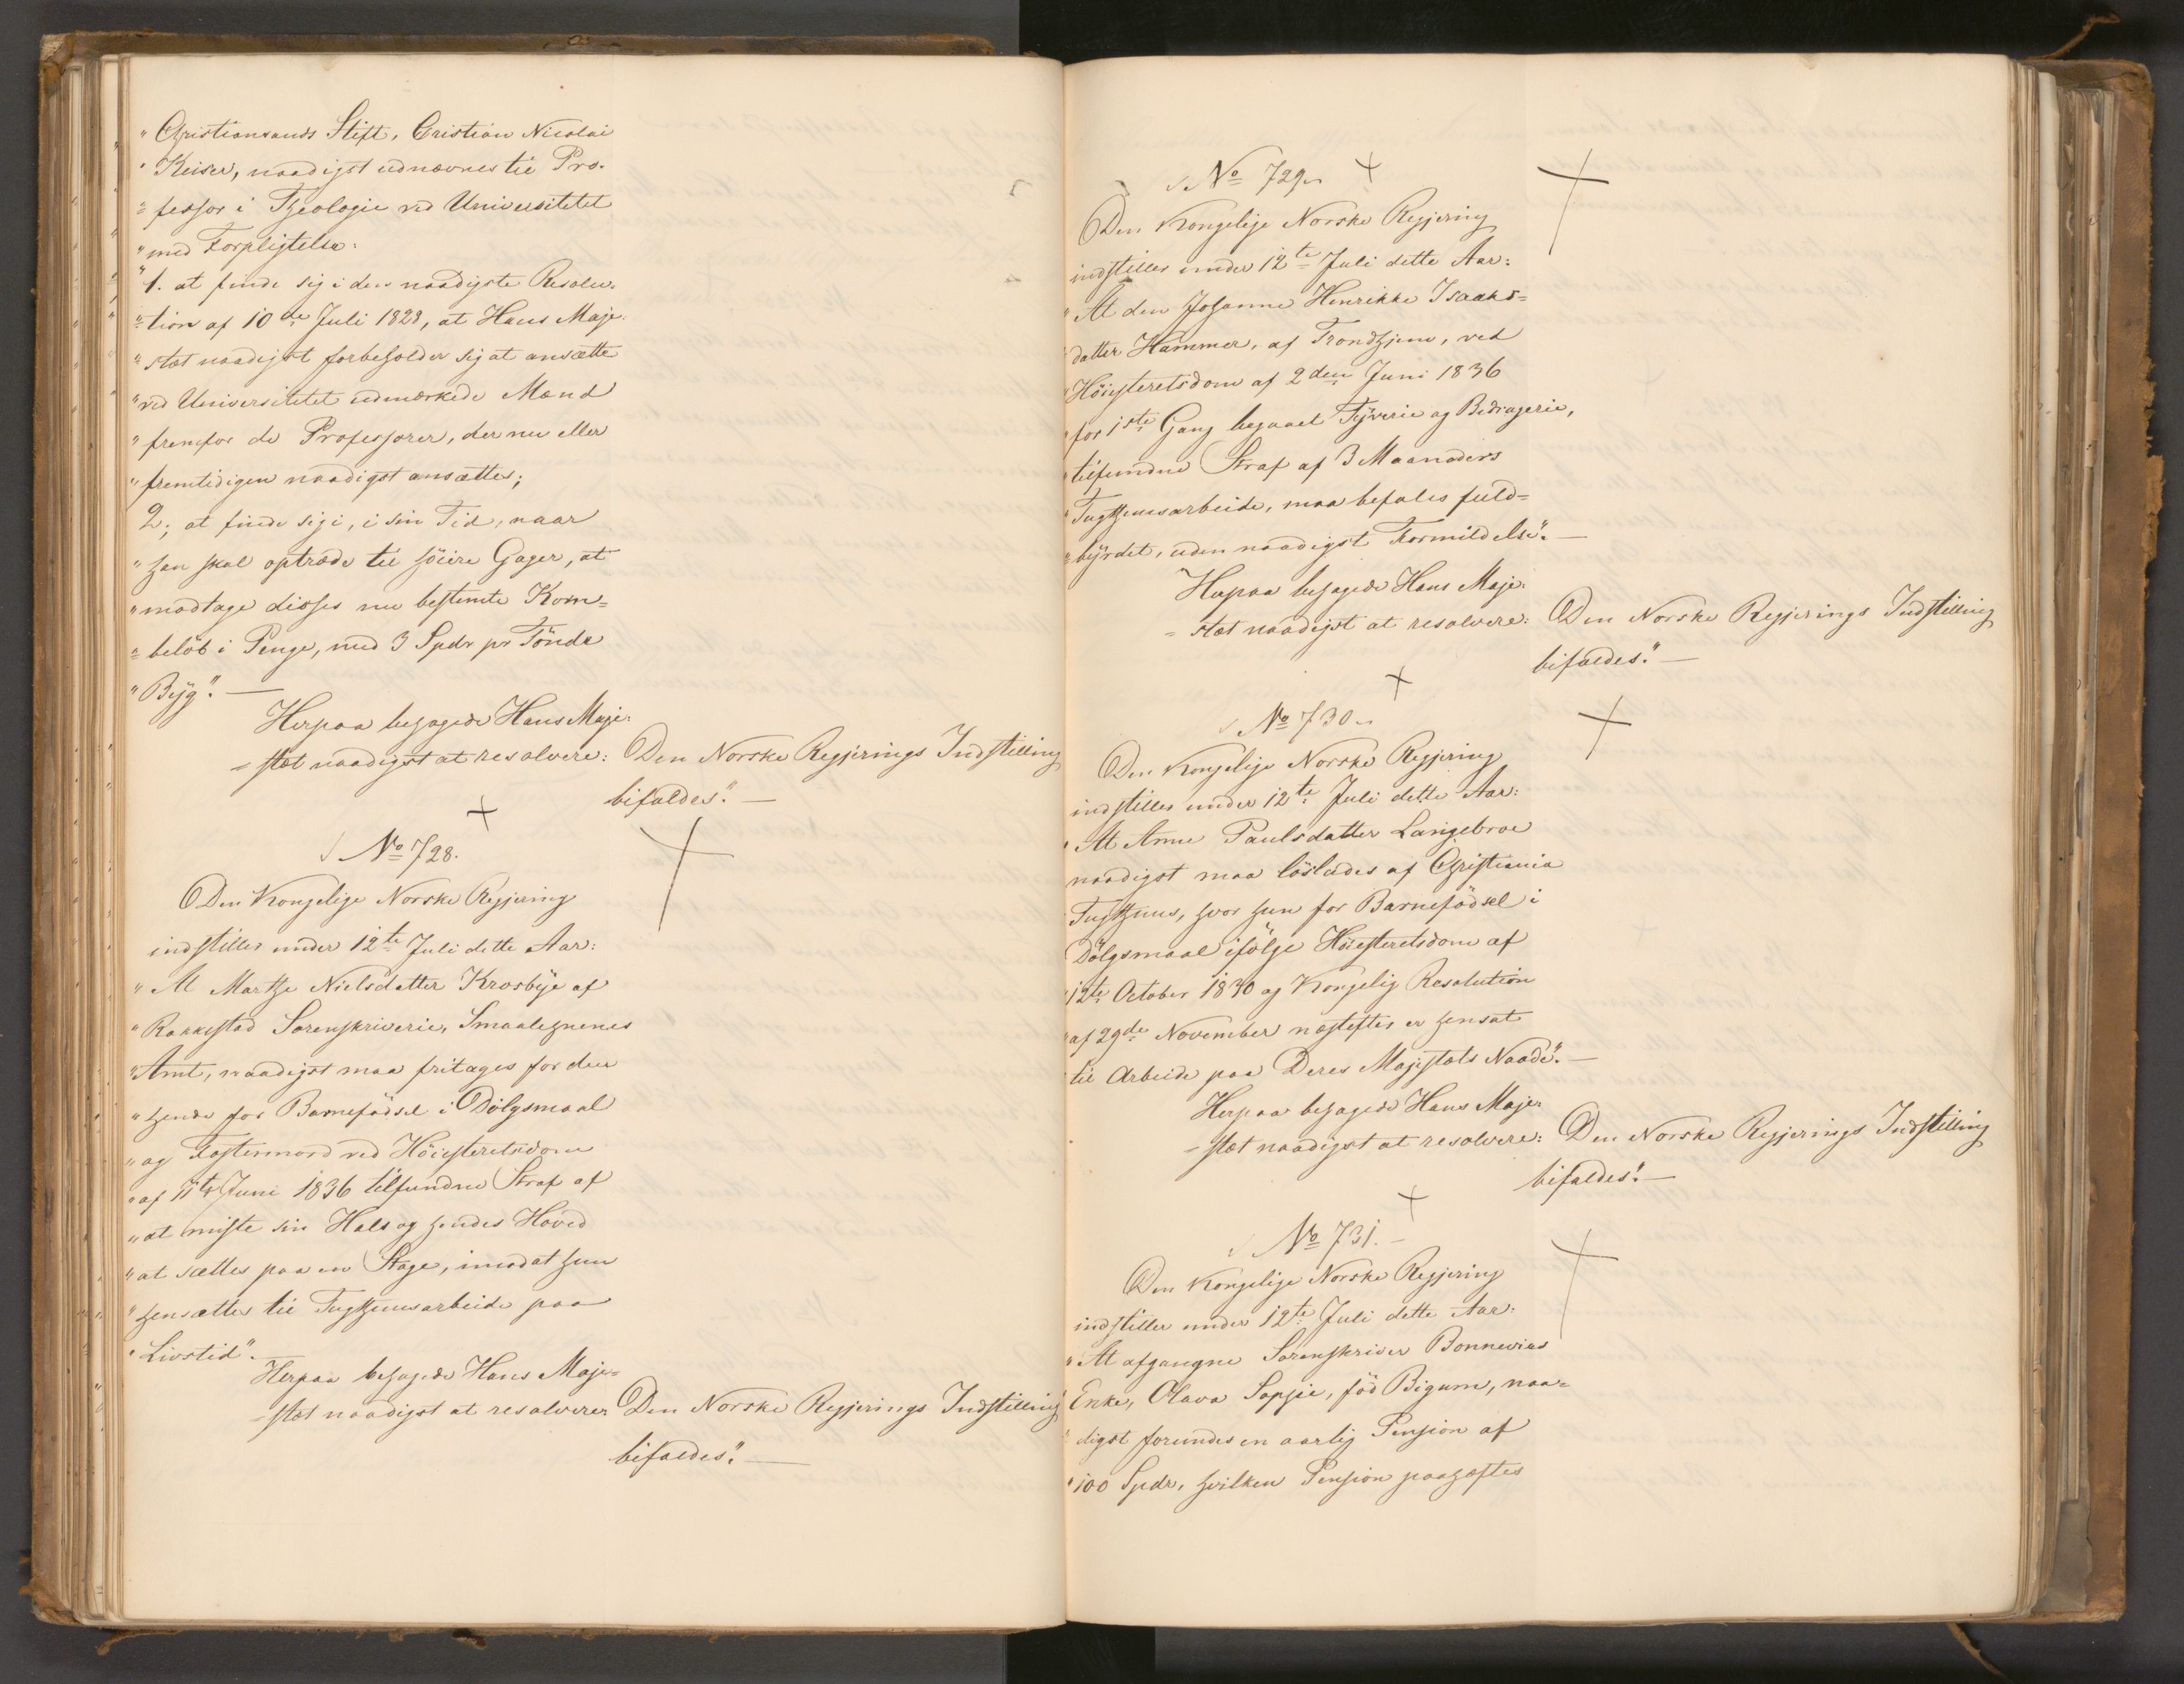 "Christiansands Stift, Cristian Nicolai
"Keiser, naadigst udnævnes til Pro-
"fessor i Theologie ved Universitetet
"med Forpligtelse:
"1. at finde sig i den naadigste Resolu-
"tion af 10de Juli 1828, at Hans Maje-
"stæt naadigst forbeholder sig at ansætte
"ved Universitetet udmærkede Mænd
"fremfor de Professorer, der nu eller
"fremtidigen naadigst ansættes;
2; at finde sig i, i sin Tid, naar
"han skal optræde til høiere Gager, at
"modtage disses nu bestemte Korn=
"beløb i Penge, med 3 Spdr pr Tönde
"Byg". —
Herpaa behagede Hans Maje-
-stæt naadigst at resolvere: Den Norske Regjerings Indstilling
bifaldes". —
No 728.
Den Kongelige Norske Regjering
indstiller under 12te Juli dette Aar:
"At Marthe Nielsdatter Krosbye af
"Rakkestad Sorenskriverie, Smaalehnenes
"Amt, naadigst maa fritages for den
"hende for Barnefödsel i Dölgsmaal
"og Fostermord ved Höiesteretsdom
"af 11te Juni 1836 tilfundne Straf af
"at miste sin Hals og hendes Hoved
"at sættes paa en Stage, imod at hun
"hensættes til Tugthuusarbeide paa
"Livstid".
Herpaa behagede Hans Maje=
-stæt naadigst at resolvere: Den Norske Regjerings Indstilling
bifaldes". —
No 729.
Den Kongelige Norske Regjering
indstiller under 12te Juli dette Aar:
"At den Johanne Henrikke Isaaks=
"datter Hammer, af Trondhjem, ved
"Höiesteretsdom af 2den Juni 1836
"for 1ste Gang begaaet Tyverie og Bedragerie,
"tilfundne Straf af 3 Maaneders
"Tugthuusarbeide, maa befales fuld=
"byrdet, uden naadigst Formildelse". —
Herpaa behagede Hans Maje-
-stæt naadigst at resolvere: Den Norske Regjerings Indstilling
bifaldes". —
No 730.
Den Kongelige Norske Regjering
indstiller under 12te Juli dette Aar:
"At Anne Paulsdatter Langebroe
naadigst maa löslades af Christiania
Tugthuus, hvor hun for Barnefödsel i
Dölgsmaal ifölge Höiesteretsdom af
"12te October 1830 og Kongelig Resolution
"af 29de November næstefter er hensat
til Arbeide paa Deres Majestæts Naade". —
Herpaa behagede Hans Maje-
-stæt naadigst at resolvere: Den Norske Regjerings Indstilling
bifaldes". —
No 731. —
Den Kongelige Norske Regjering
indstiller under 12te Juli dette Aar:
"At afgangne Sorenskriver Bonnevies
Enke, Olava Sophie, föd Bigum, naa=
"digst forundes en aarlig Pension af
"100 Spdr, hvilken Pension paahæftes